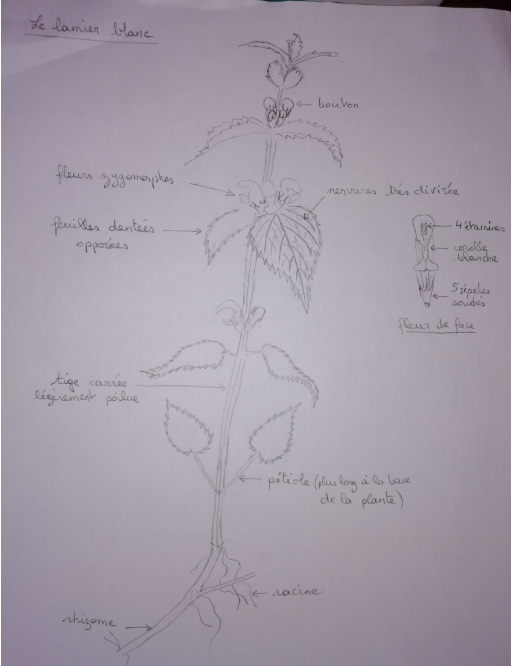 Le lamier blanc
bouton
fleurs zygomorphes
nervures très divisée
feuilles dentées
opposées
4 étamines
corolle
blanche
5 sépales
soudés
fleur de face
tige carrée
légèrement poilue
pétiole (plus long à la base
de la plante)
racine
rhizome